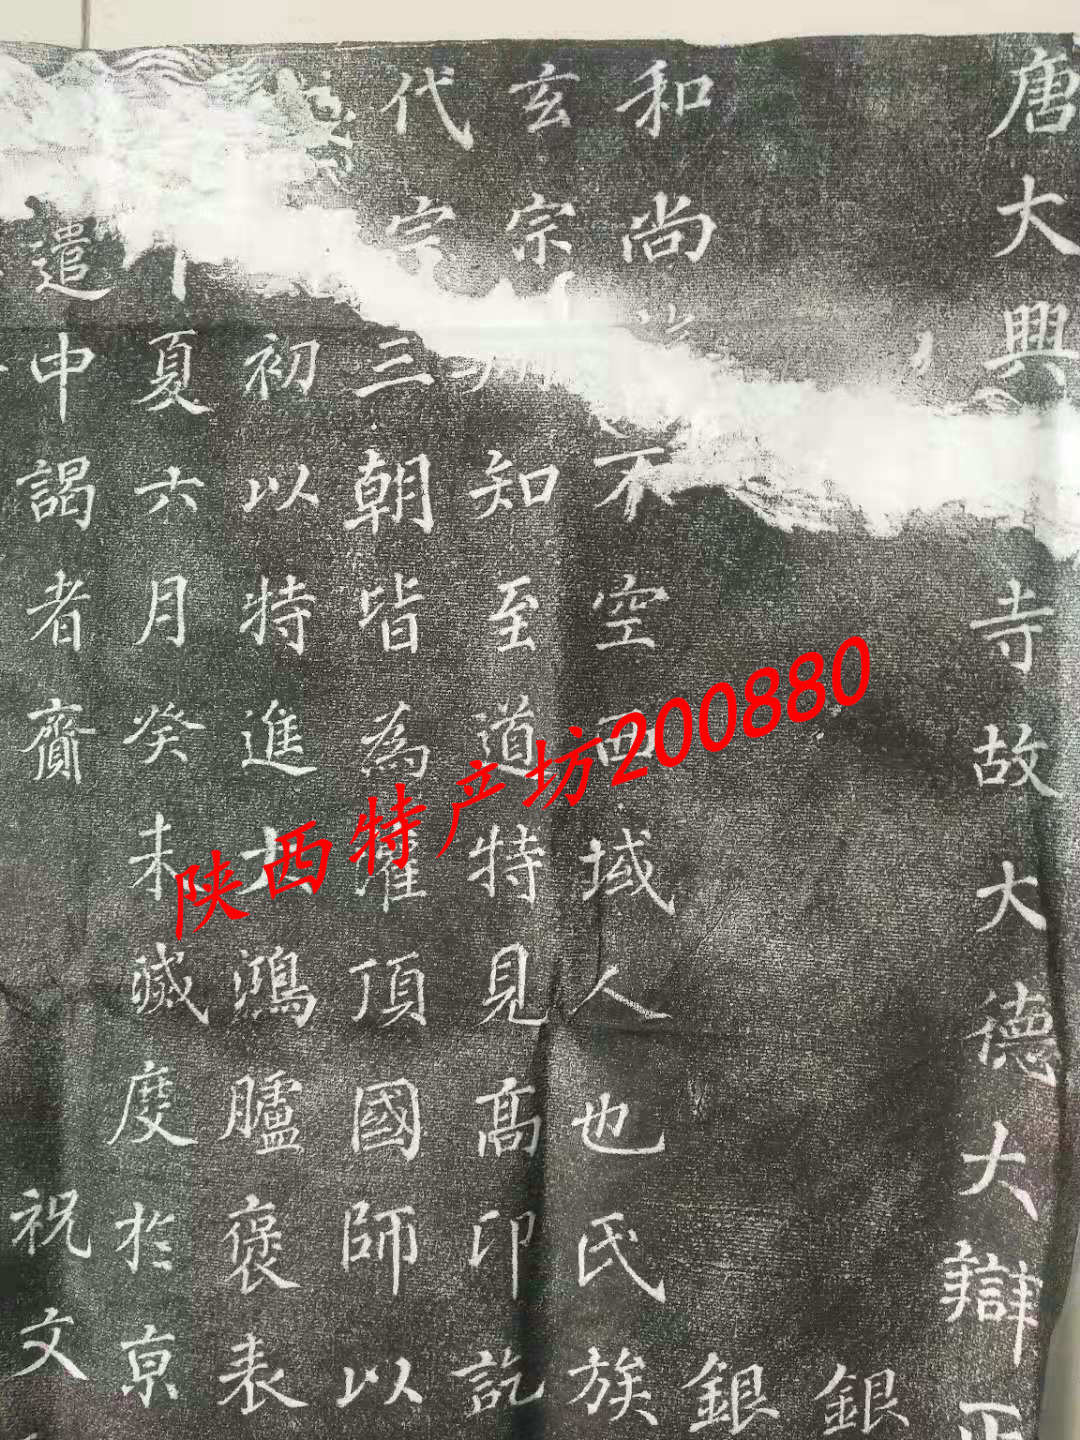 唐大興寺故大德大辯正
銀
銀
和尚不空西域人也氏族
玄宗知至道特見高印訖
代宗三朝皆為灌頂國師以
初以特進大鴻臚褒表
夏六月癸未滅度於京
遣中謁者齎祝文
陕西特产坊200880